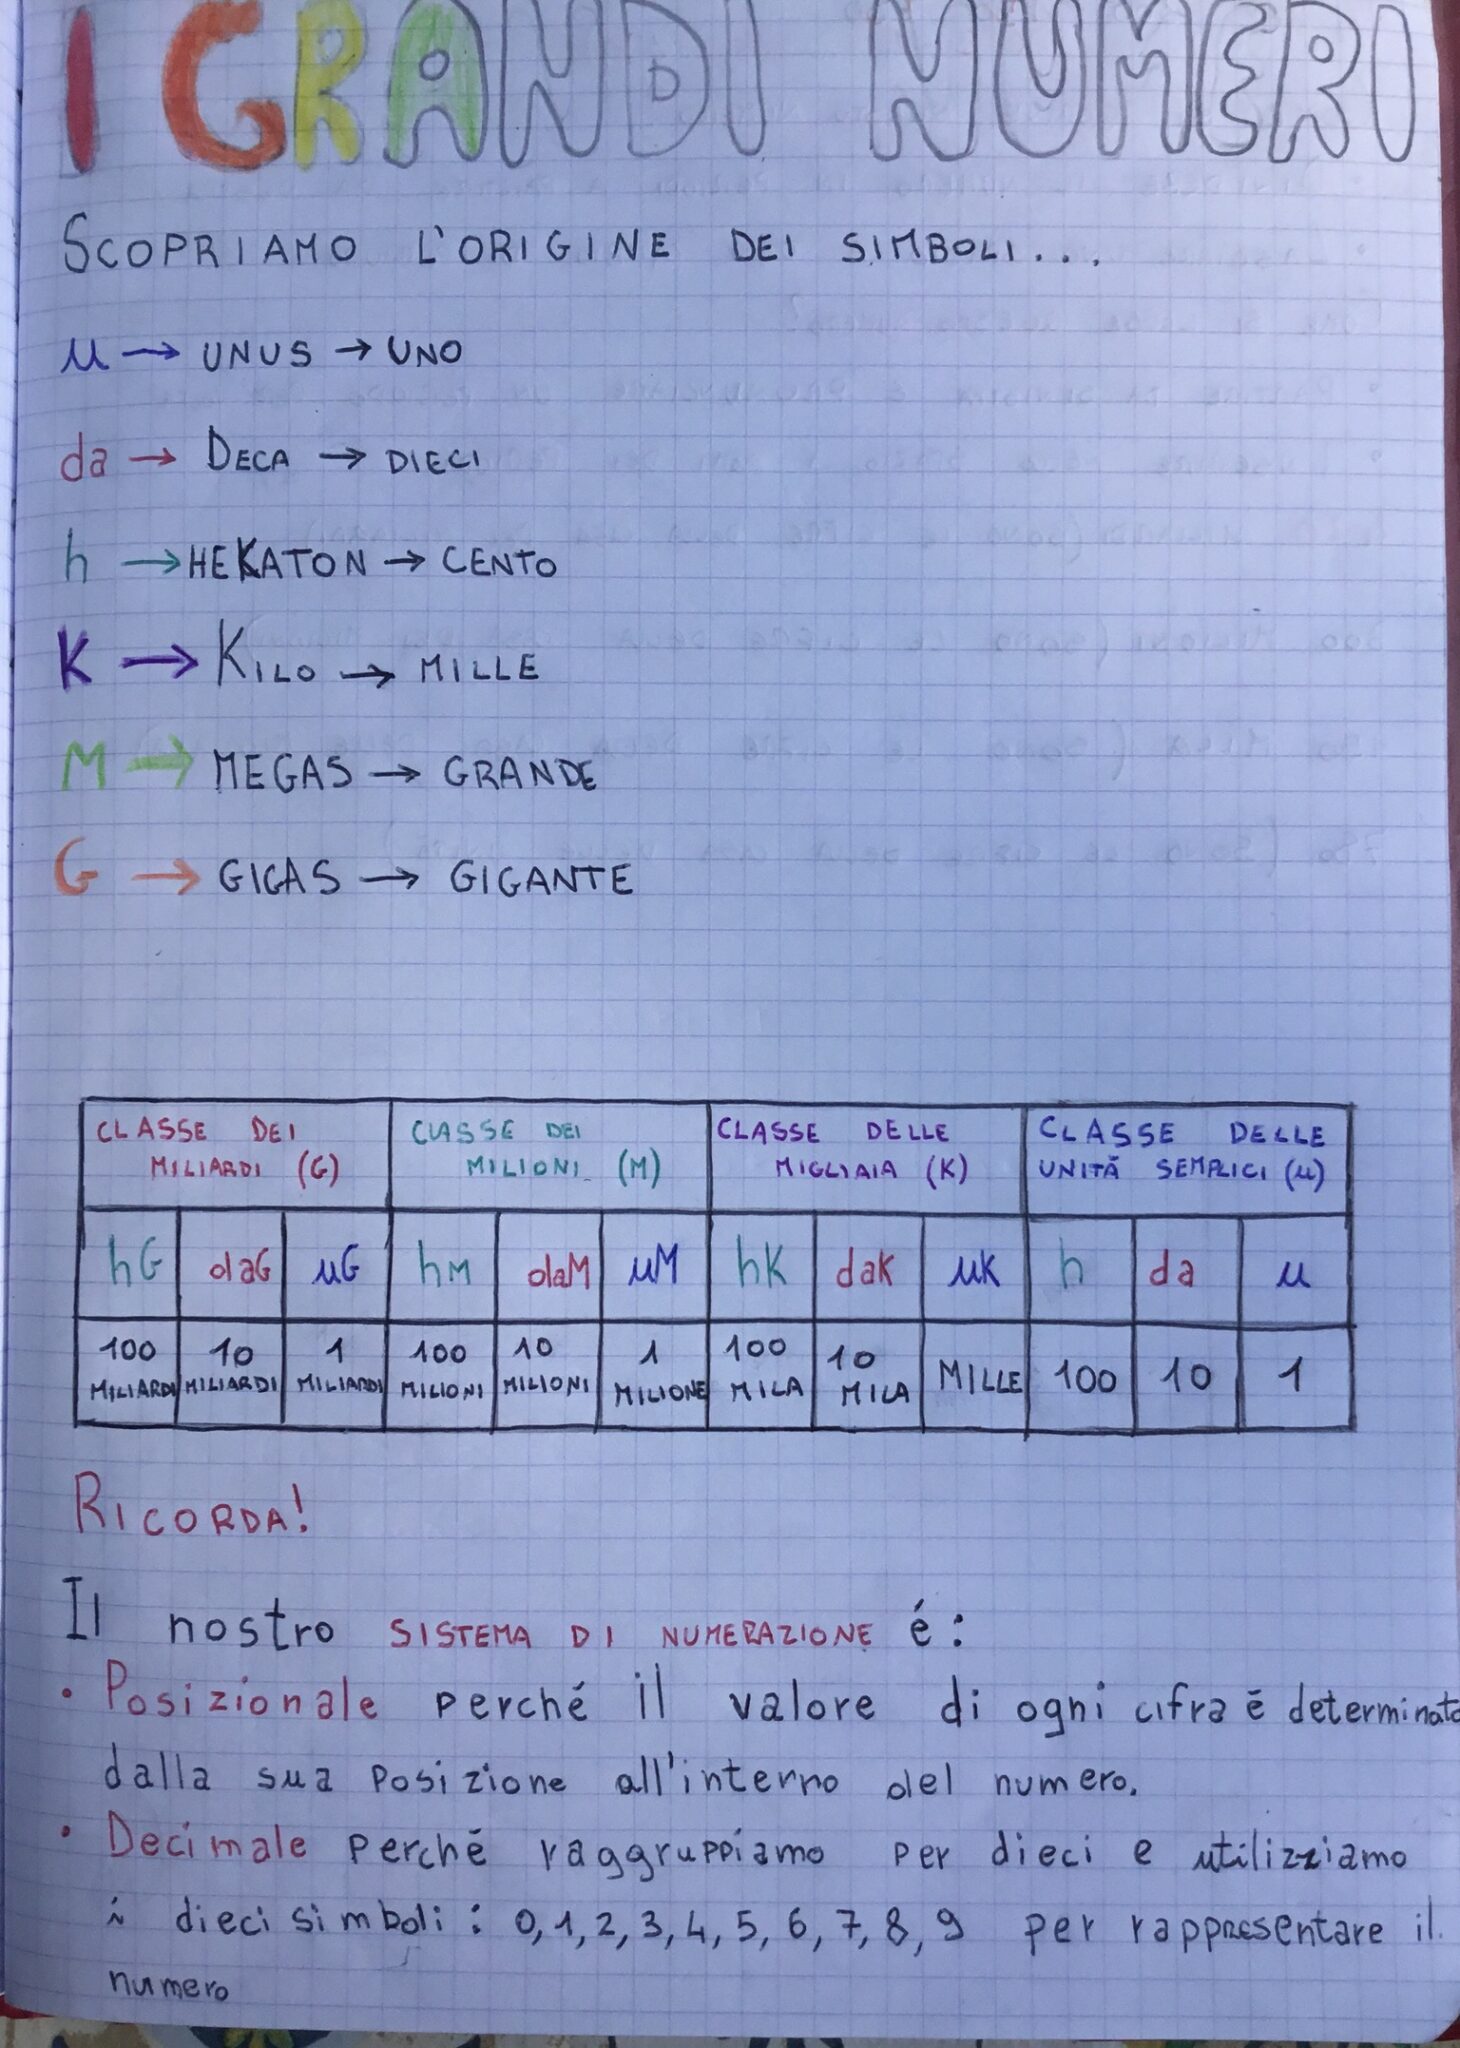 I GRANDI NUMERI
SCOPRIAMO L'ORIGINE DEI SIMBOLI...
u → UNUS → UNO
da → DECA → DIECI
h → HEKATON → CENTO
K → KILO → MILLE
M → MEGAS → GRANDE
G → GIGAS → GIGANTE
CLASSE DEI MILIARDI (G) CLASSE DEI MILIONI (M) CLASSE DELLE MIGLIAIA (K) CLASSE DELLE UNITÀ SEMPLICI (u)
hG daG uG hM daM uM hK daK uK h da u
100 MILIARDI 10 MILIARDI 1 MILIARDI 100 MILIONI 10 MILIONI 1 MILIONE 100 MILA 10 MILA MILLE 100 10 1
RICORDA!
Il nostro SISTEMA DI NUMERAZIONE é:
• Posizionale perché il valore di ogni cifra è determinato
dalla sua posizione all'interno del numero.
• Decimale perché raggruppiamo per dieci e utilizziamo
i dieci simboli: 0, 1, 2, 3, 4, 5, 6, 7, 8, 9 per rappresentare il
numero